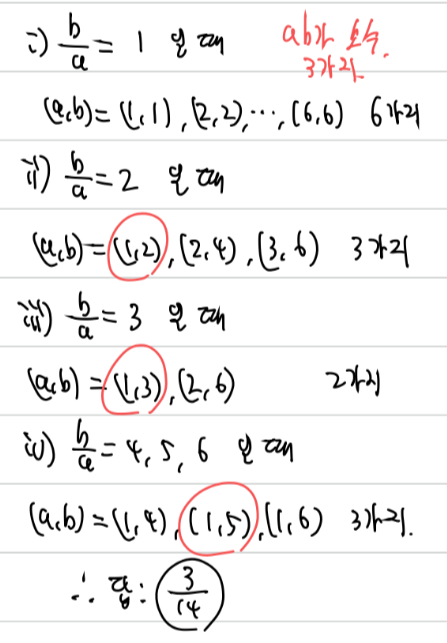 i) b/a = 1 일 때
ab가 소수.
3가지
(a,b)=(1,1),(2,2),⋯,(6,6) 6가지
ii) b/a = 2 일 때
(a,b)=(1,2),(2,4),(3,6) 3가지
iii) b/a = 3 일 때
(a,b)=(1,3),(2,6) 2가지
iv) b/a = 4, 5, 6 일 때
(a,b)=(1,4),(1,5),(1,6) 3가지.
∴ 답: 3/14